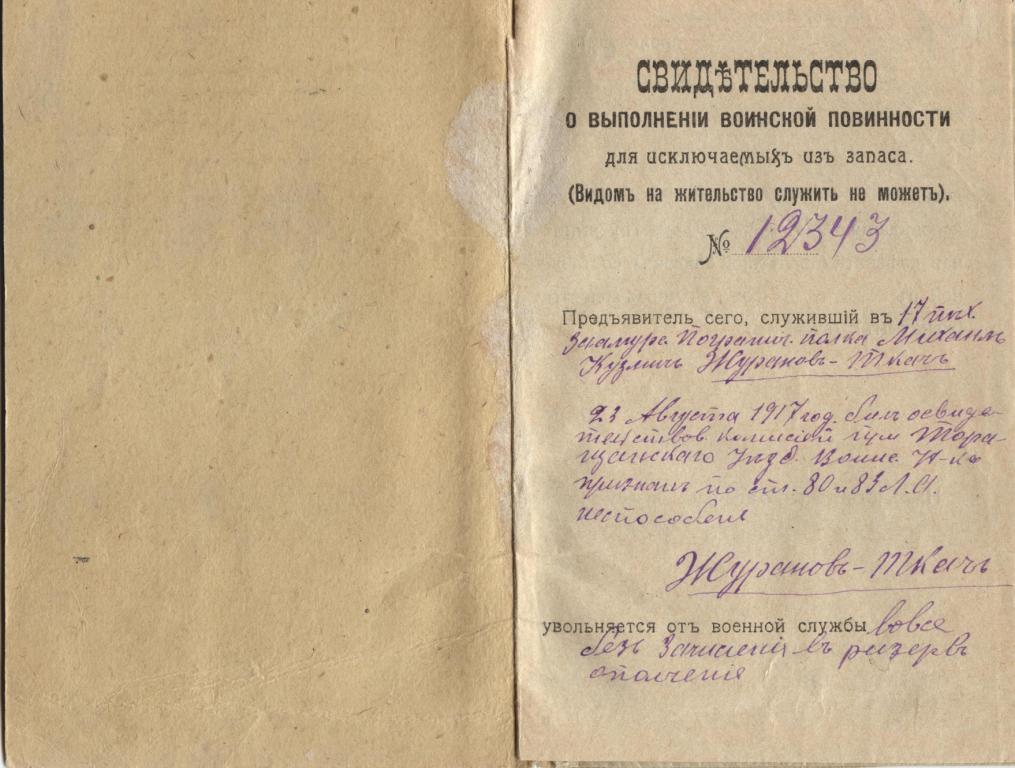 СВИДѢТЕЛЬСТВО
О ВЫПОЛНЕНІИ ВОИНСКОЙ ПОВИННОСТИ
для исключаемыхъ изъ запаса.
(Видомъ на жительство служить не можетъ).
№ 12343
Предъявитель сего, служившій въ 17 пѣх.
Заамурс. Погранич. полка Михаилъ
Кузмичъ Журановъ-Ткачъ
23 Августа 1917 год. былъ освиде-
тельствов. комисіей при Тора-
щанскаго Уѣзд. Воинс. Н-ка
признанъ по ст. 80 и 83 Л.А.
неспособен
Журановъ-Ткачъ
увольняется отъ военной службы вовсе
безъ Зачисленія въ резервъ
ополченіе